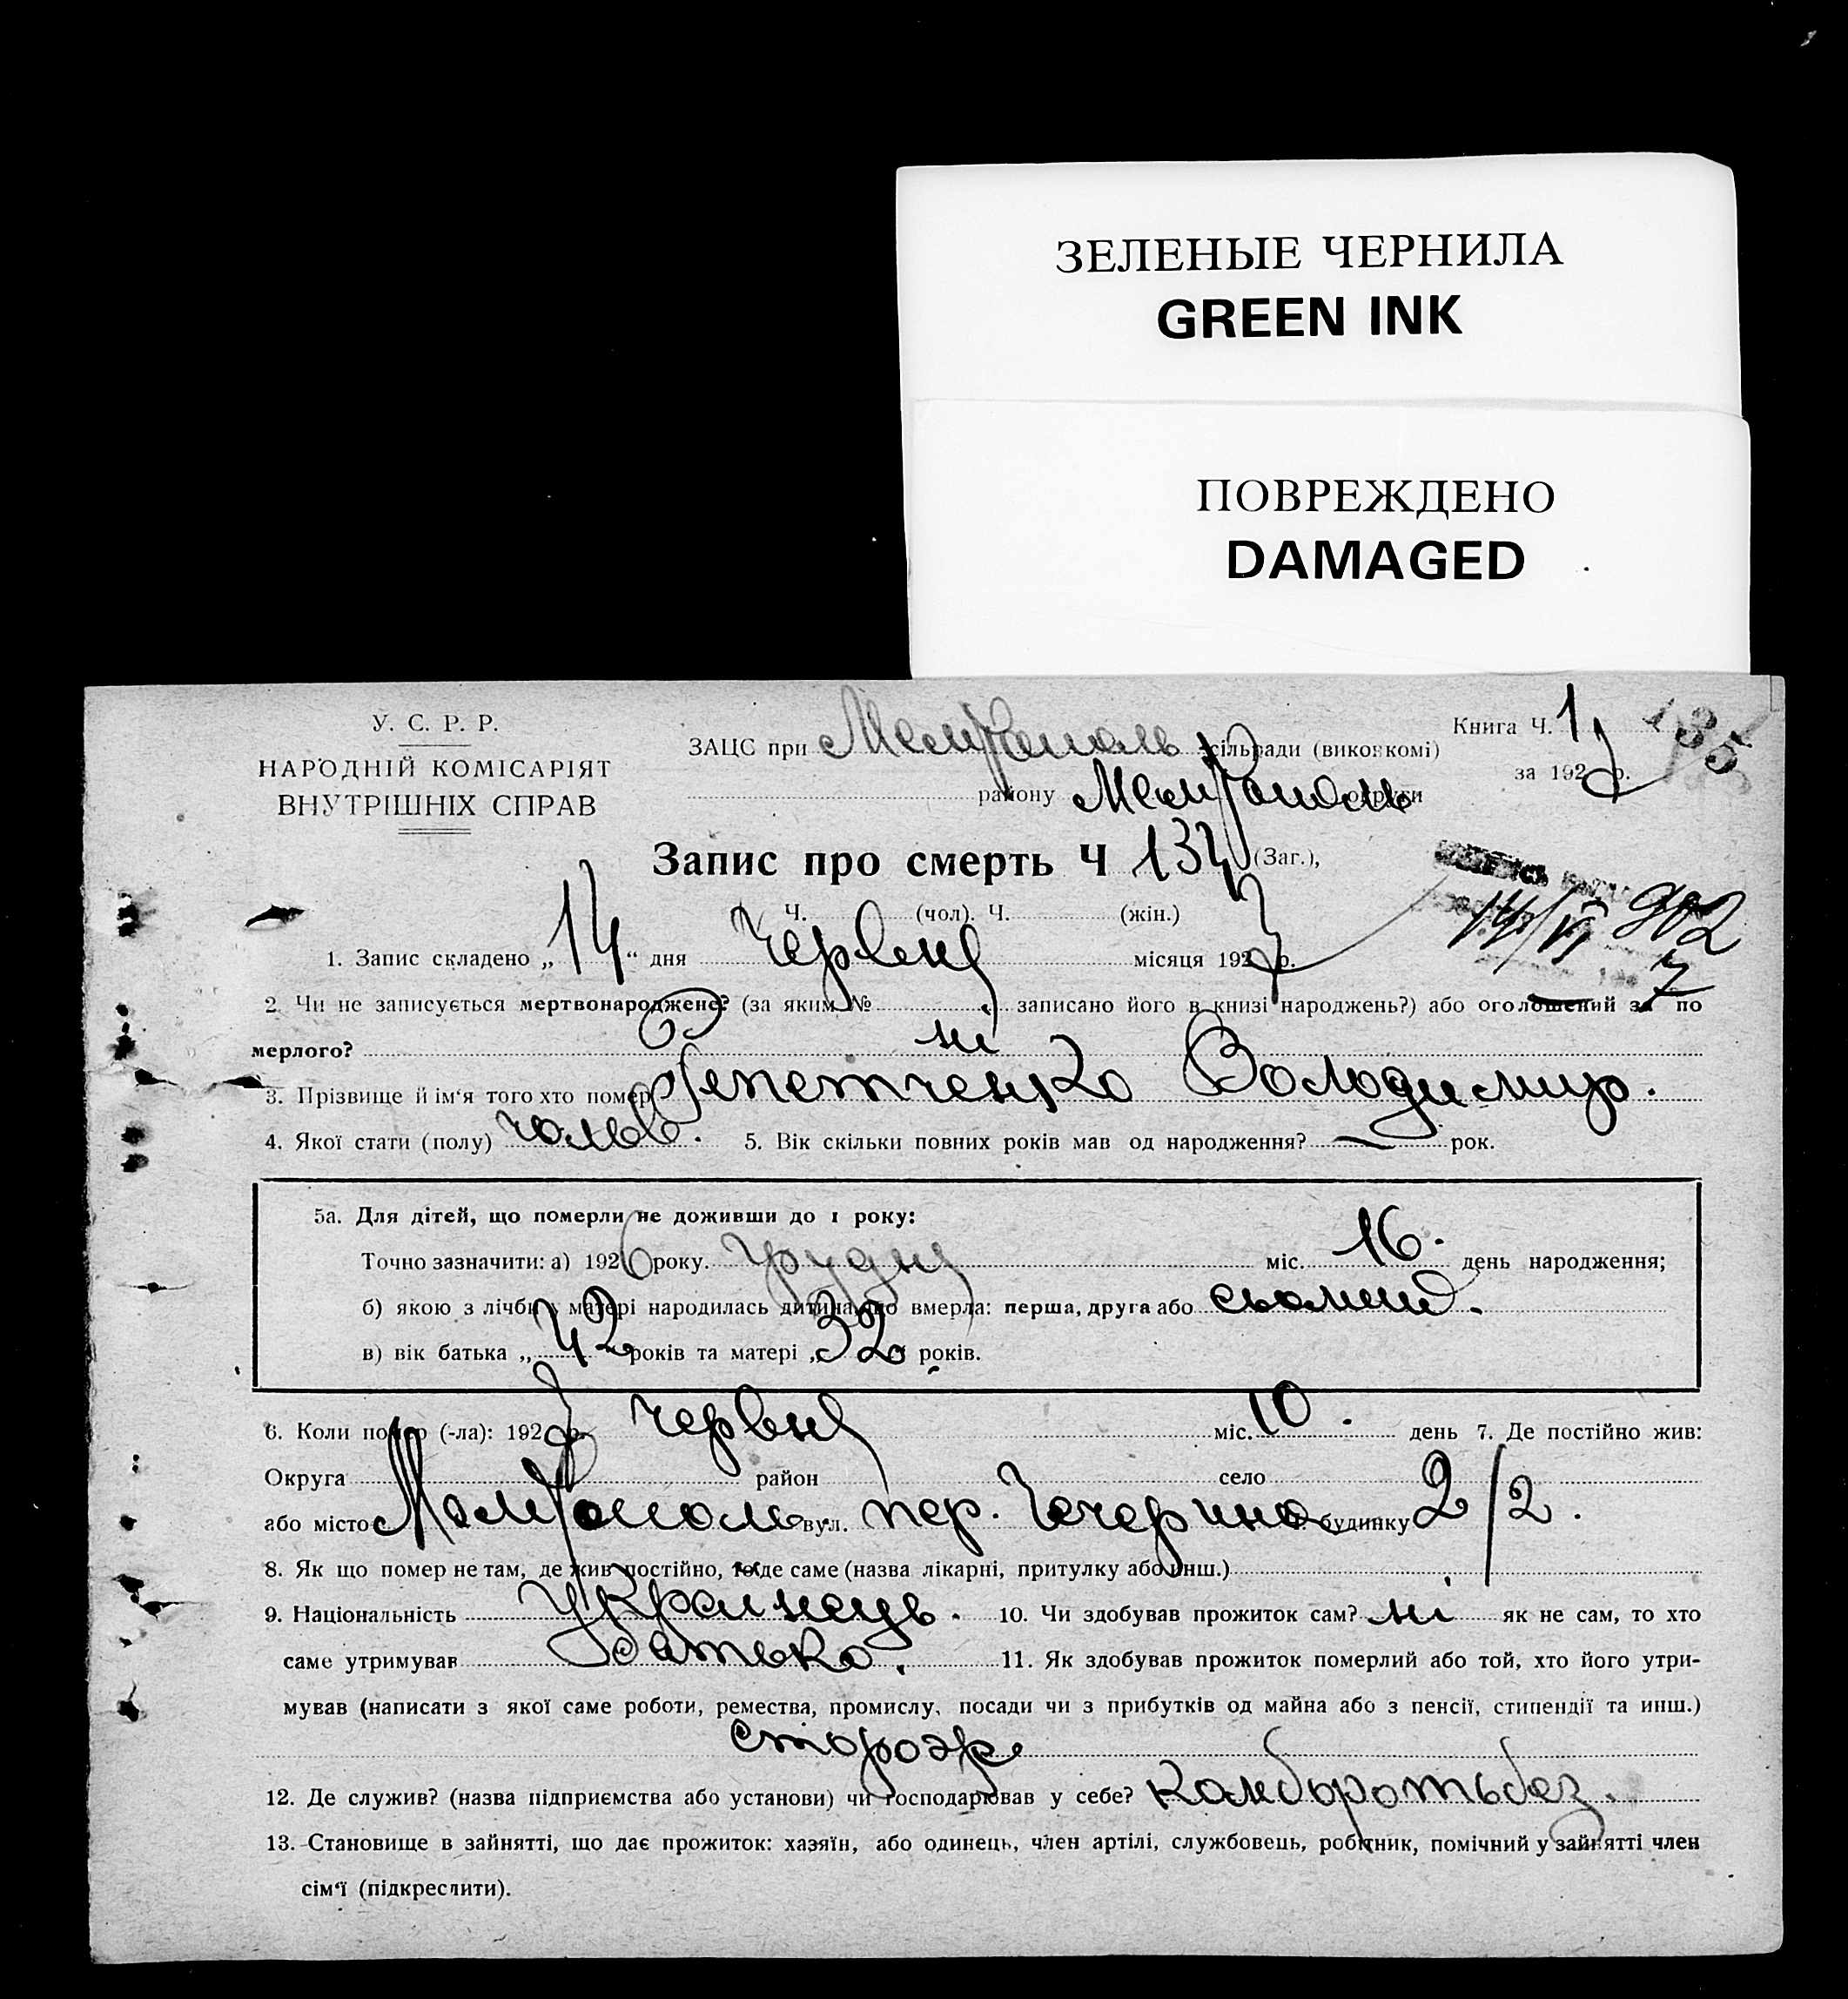 ЗЕЛЕНЫЕ ЧЕРНИЛА
GREEN INK
ПОВРЕЖДЕНО
DAMAGED
У. С. Р. Р.
НАРОДНІЙ КОМІСАРІЯТ
ВНУТРІШНІХ СПРАВ
ЗАЦС при Мелітополь сільради (виконкомі)
району Мелітополь округи
Книга Ч. 1
за 1927 р.
135
Запис про смерть Ч 134 (Заг.),
Ч. (чол). Ч. (жін.)
14/VI 902
7
1. Запис складено „14“ дня Червня місяця 1927 р.
2. Чи не записується мертвонароджене? (за яким № записано його в книзі народжень?) або оголошений за по
мерлого? ні
3. Прізвище й ім'я того хто помер Репетченко Володимир.
4. Якої стати (полу) чолов. 5. Вік скільки повних років мав од народження? — рок.
5а. Для дітей, що померли не доживши до 1 року:
Точно зазначити: а) 1926 року. Грудня міс. 16. день народження;
б) якою з лічби у матері народилась дитина що вмерла: перша, друга або сьомий.
в) вік батька „42 років та матері „32“ років.
6. Коли помер (-ла): 1927 р. червня міс. 10. день 7. Де постійно жив:
Округа район село
або місто Мелітополь вул. пер. Чечерина будинку 2/2.
8. Як що помер не там, де жив постійно, то де саме (назва лікарні, притулку або инш.)
9. Національність Українець. 10. Чи здобував прожиток сам? ні як не сам, то хто
саме утримував Батько. 11. Як здобував прожиток померлий або той, хто його утри-
мував (написати з якої саме роботи, ремества, промислу, посади чи з прибутків од майна або з пенсії, стипендії та инш.)
сторож
12. Де служив? (назва підприємства або установи) чи господарював у себе? Камборотьбез.
13. Становище в зайнятті, що дає прожиток: хазяїн, або одинець, член артілі, службовець, робітник, помічний у зайнятті член
сім'ї (підкреслити).